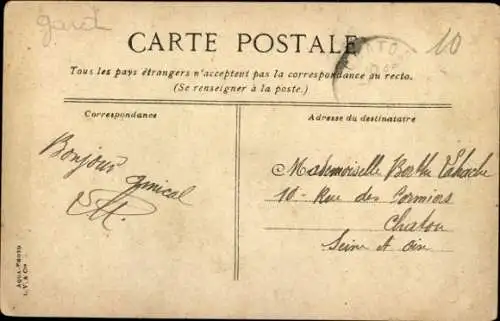 gard
10
CARTE POSTALE
Tous les pays étrangers n'acceptent pas la correspondance au recto.
(Se renseigner à la poste.)
Correspondance
Adresse du destinataire
Bonjour
amical
Mademoiselle Berthe
10 - Rue des Cormiers
Chatou
Seine et Oise
AQUA-PHOTO
L. V. & Cie